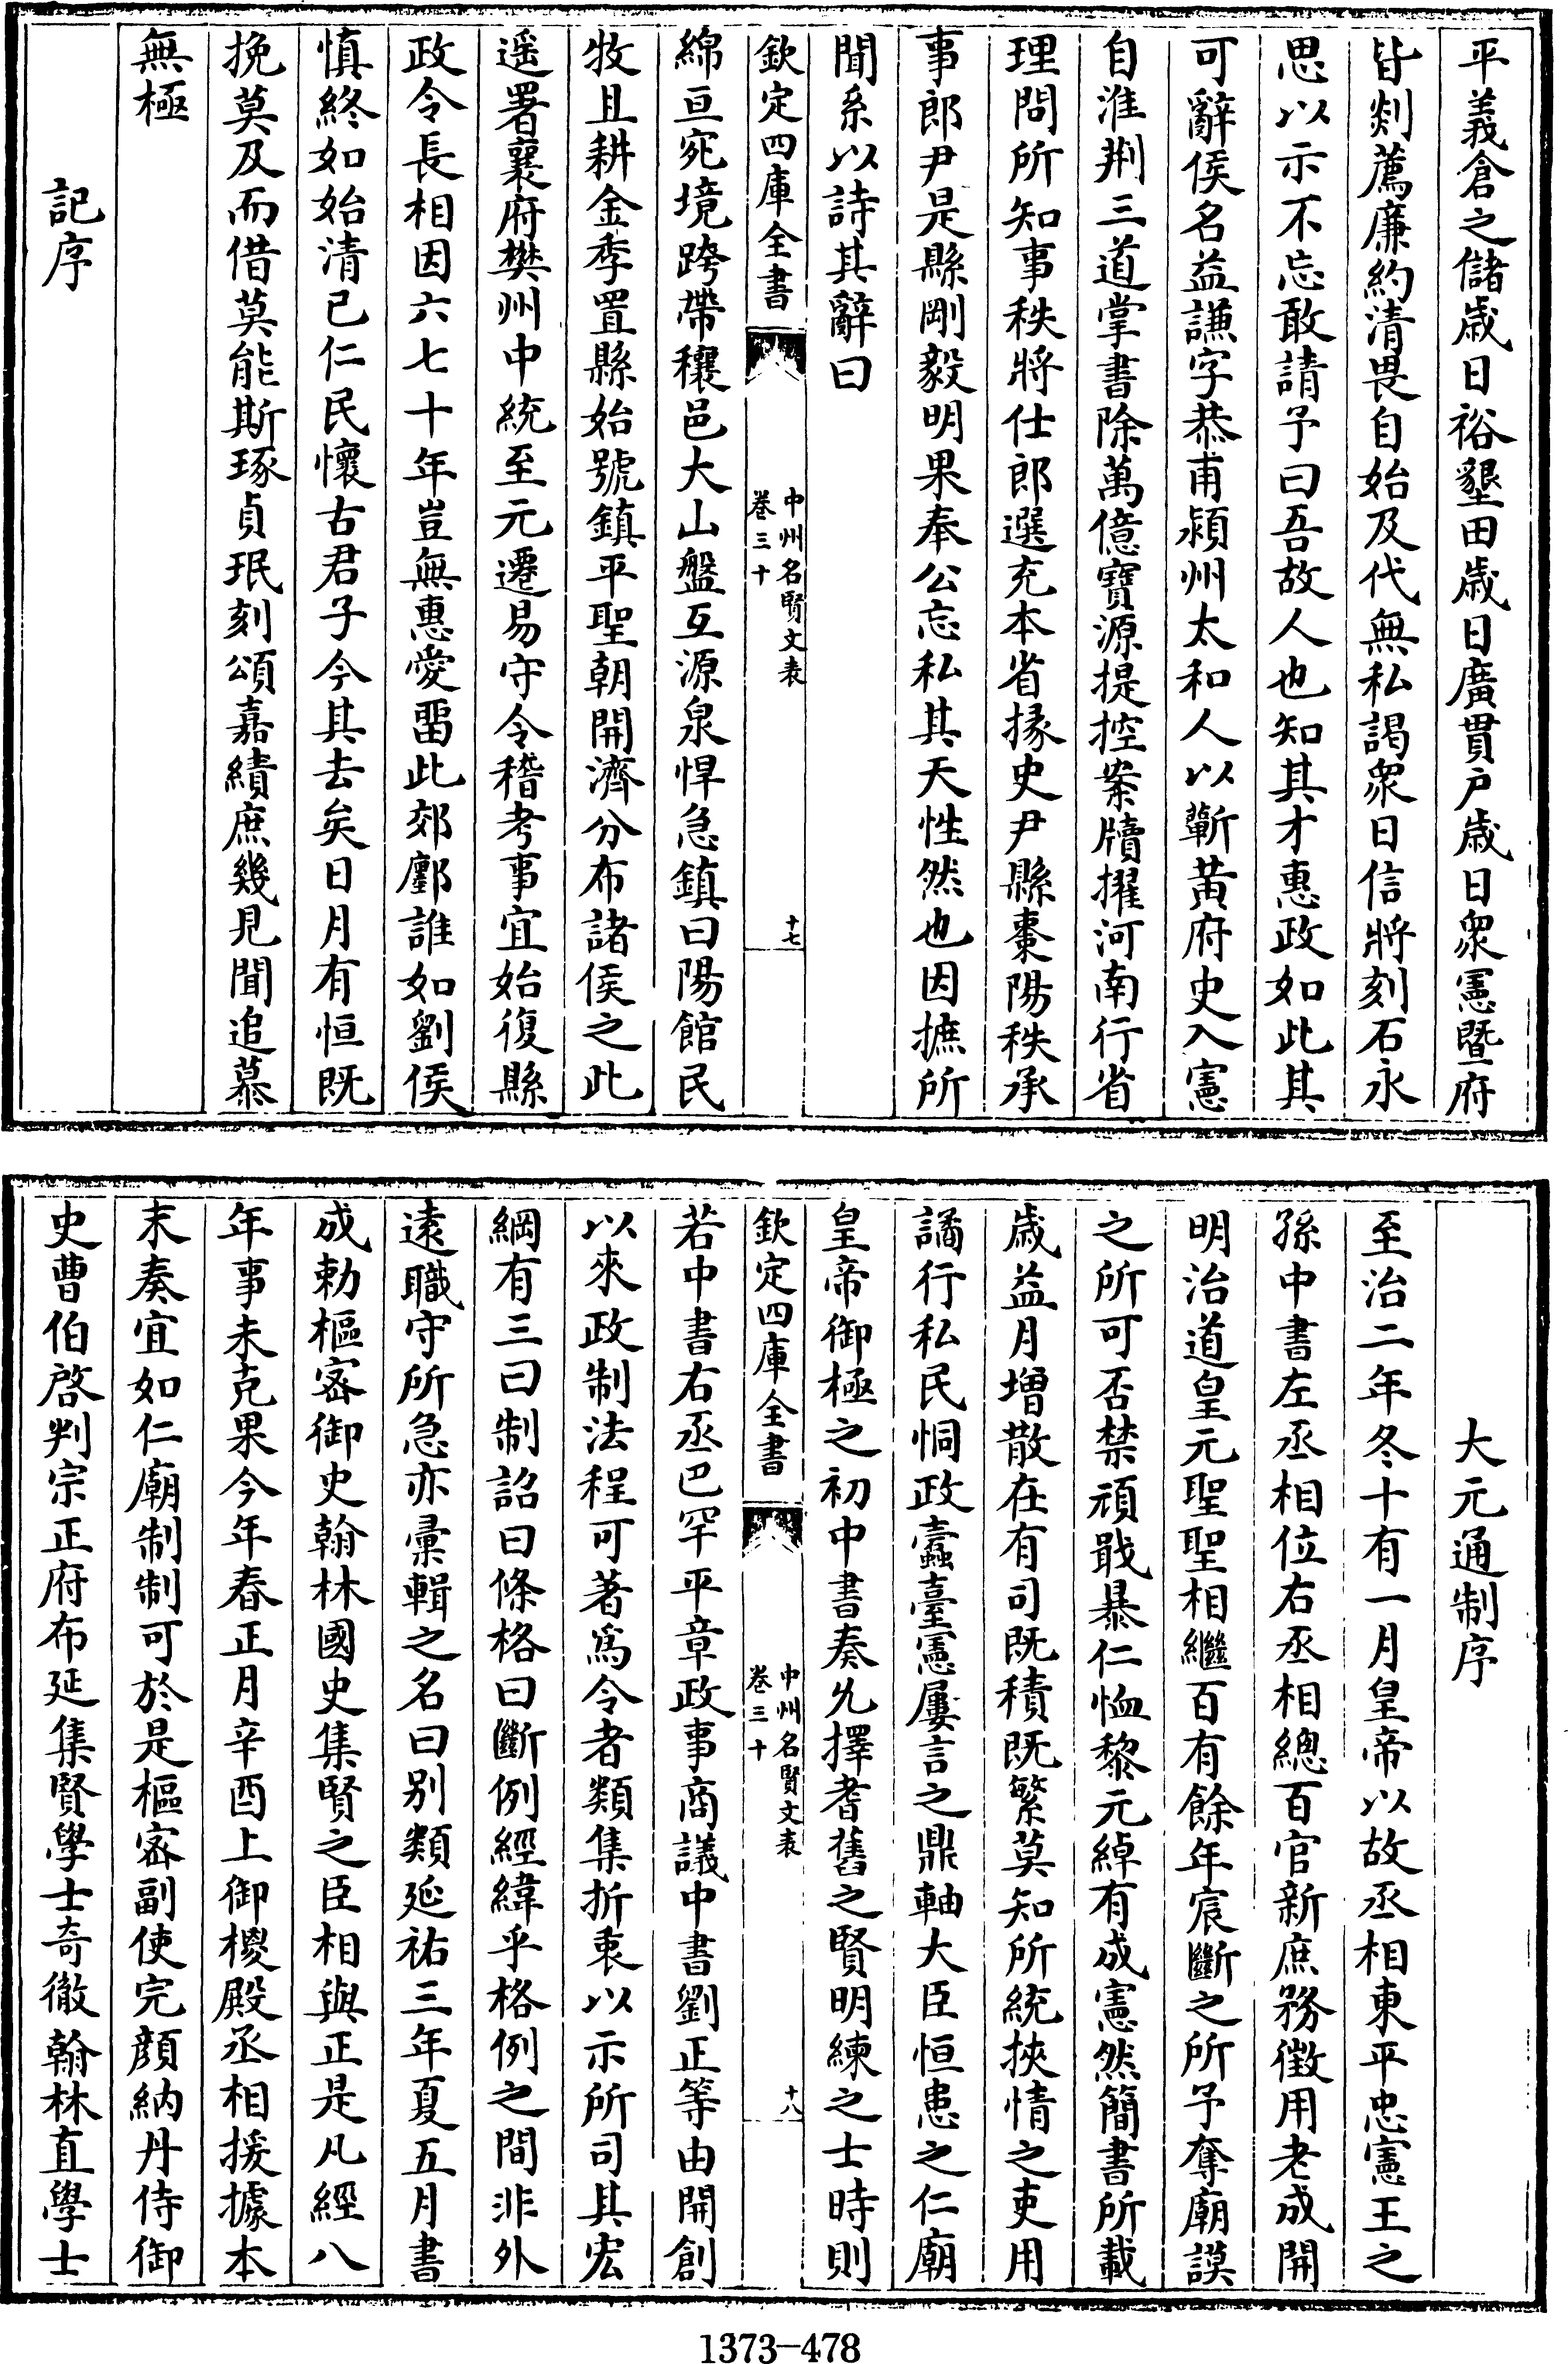 平義倉之儲歳日裕墾田歳日廣貫戶歳日衆憲暨府
皆剡薦廉約清畏自始及代無私謁衆日信將刻石永
思以示不忘敢請予曰吾故人也知其才惠政如此其
可辭侯名益謙字恭甫潁州太和人以蘄黃府史入憲
自淮荆三道掌書除萬億寶源提控案牘擢河南行省
理問所知事秩將仕郎選充本省掾史尹縣棗陽秩承
事郎尹是縣剛毅明果奉公忘私其天性然也因摭所
聞系以詩其辭曰
欽定四庫全書
中州名賢文表
卷三十
十七
綿亘宛境跨帶穰邑大山盤互源泉悍急鎮曰陽館民
牧且耕金季置縣始號鎮平聖朝開濟分布諸侯之此
遥署襄府樊州中統至元遷易守令稽考事宜始復縣
政令長相因六七十年豈無惠愛畱此郊鄽誰如劉侯
慎終如始清已仁民懷古君子今其去矣日月有恒既
挽莫及而借莫能斯琢貞珉刻頌嘉績庶幾見聞追慕
無極
記序
大元通制序
至治二年冬十有一月皇帝以故丞相東平忠憲王之
孫中書左丞相位右丞相總百官新庶務徴用老成開
明治道皇元聖聖相繼百有餘年宸斷之所予奪廟謨
之所可否禁頑戢暴仁恤黎元綽有成憲然簡書所載
歳益月增散在有司既積既繁莫知所統挾情之吏用
譎行私民恫政蠧臺憲屢言之鼎軸大臣恒患之仁廟
皇帝御極之初中書奏允擇耆舊之賢明練之士時則
欽定四庫全書
中州名賢文表
卷三十
十八
若中書右丞巴罕平章政事商議中書劉正等由開創
以來政制法程可著爲令者類集折衷以示所司其宏
綱有三曰制詔曰條格曰斷例經緯乎格例之間非外
遠職守所急亦彚輯之名曰别類延祐三年夏五月書
成勅樞宻御史翰林國史集賢之臣相與正是凡經八
年事未克果今年春正月辛酉上御椶殿丞相援據本
末奏宜如仁廟制制可於是樞宻副使完顔納丹侍御
史曹伯啓判宗正府布延集賢學士奇徹翰林直學士
1373—478